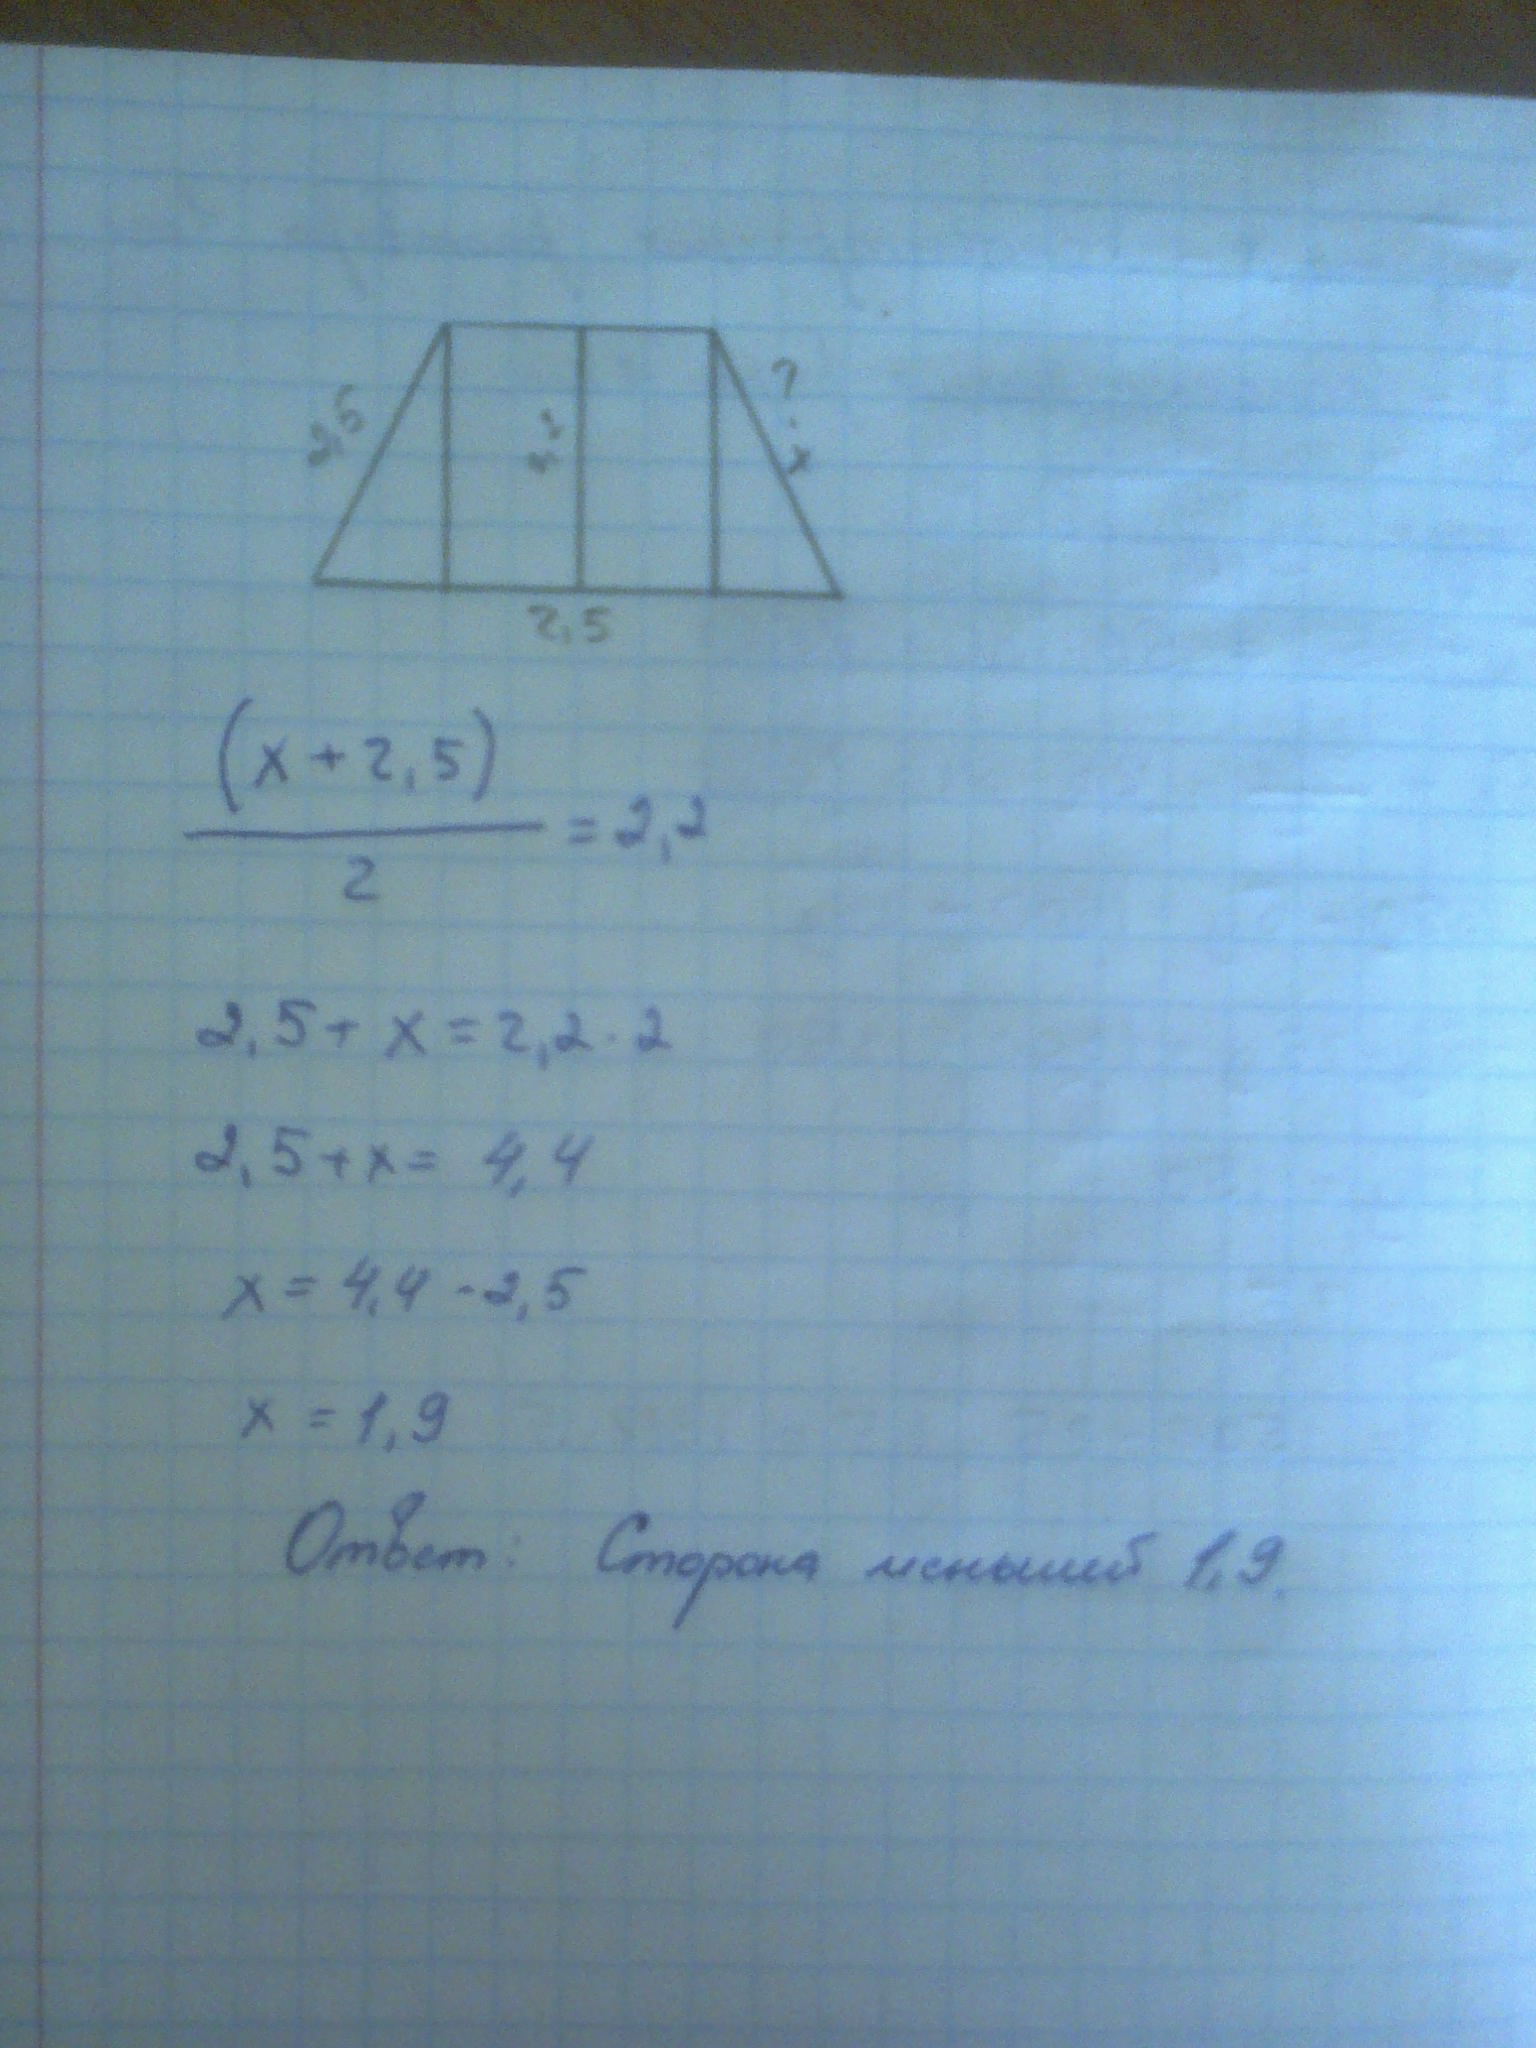 2,5
2,2
? · x
2,5
(x + 2,5)
2
= 2,2
2,5 + x = 2,2 · 2
2,5 + x = 4,4
x = 4,4 - 2,5
x = 1,9
Ответ: Сторона меньшей 1,9.